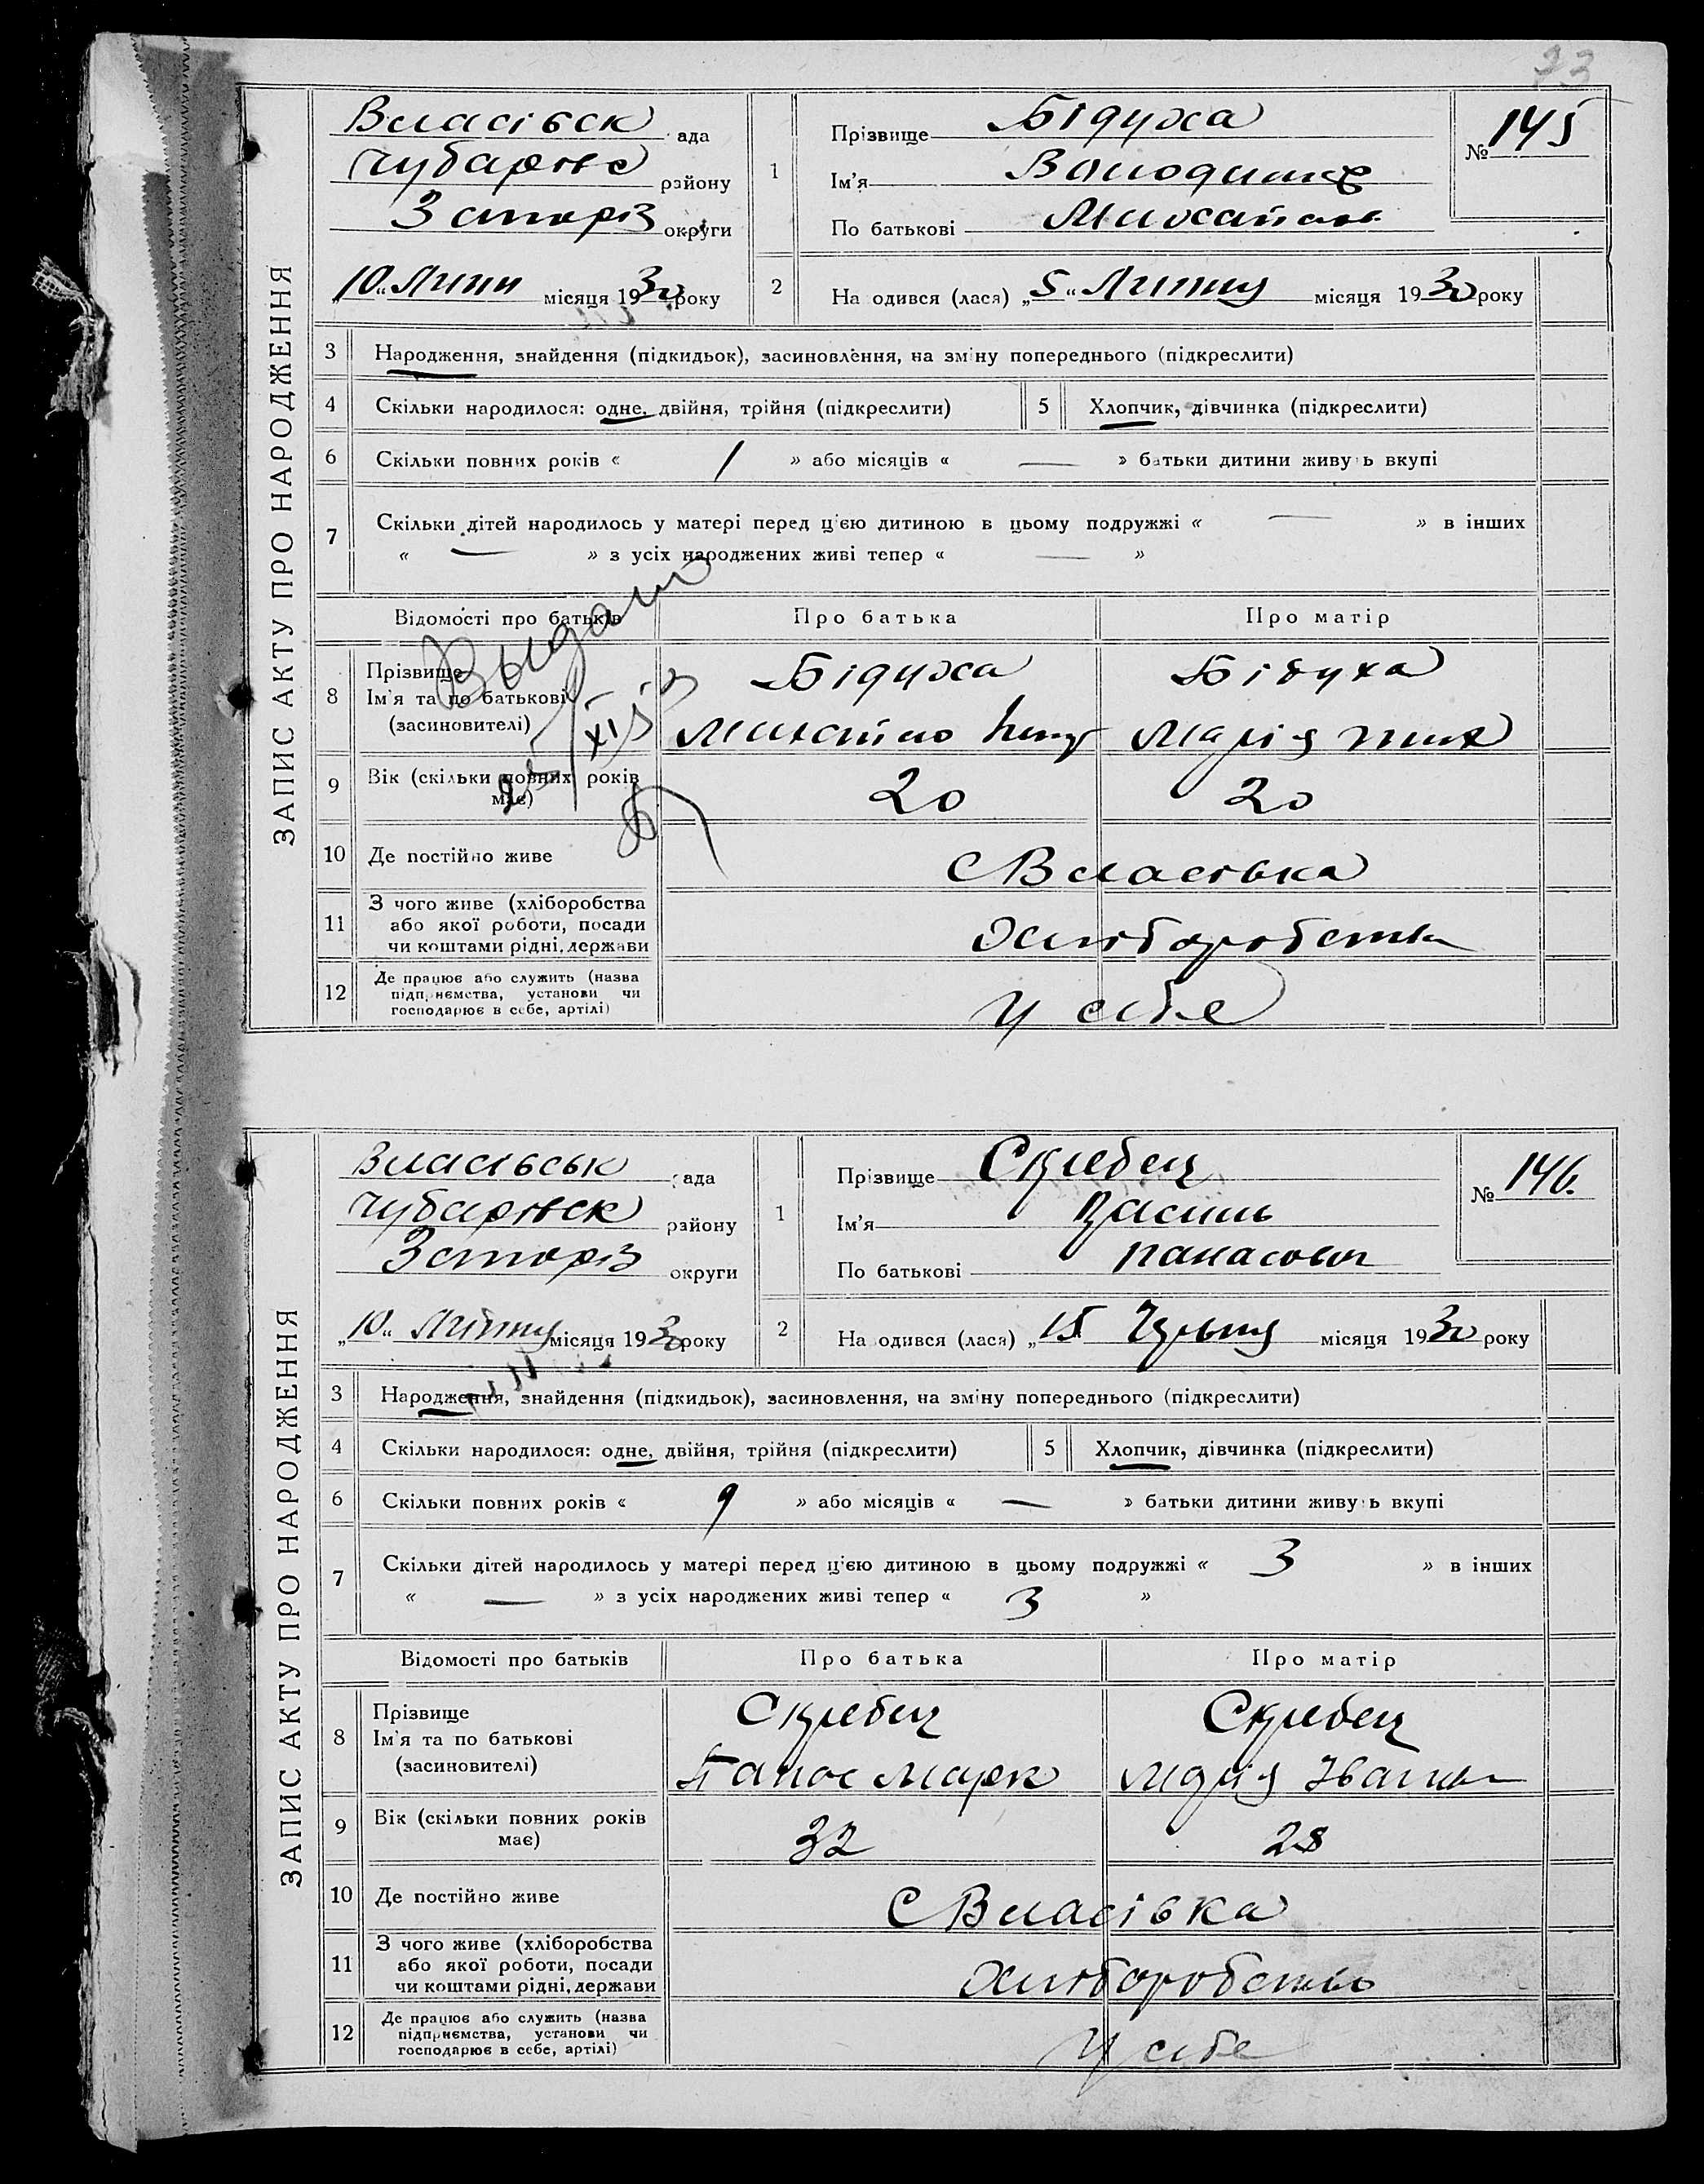 73
ЗАПИС АКТУ ПРО НАРОДЖЕННЯ
Власівск ада
Чубарівс району
Запоріз округи
„10“ Липн місяця 1930 року
1
Прізвище Бідуха
Ім'я Володимир
По батькові Михайлов
№ 145
2
На одився (лася) „5“ Липня місяця 1930 року
3 Народження, знайдення (підкидьок), засиновлення, на зміну попереднього (підкреслити)
4 Скільки народилося: одне, двійня, трійня (підкреслити) 5 Хлопчик, дівчинка (підкреслити)
6 Скільки повних років « 1 » або місяців « — » батьки дитини живу ь вкупі
7 Скільки дітей народилось у матері перед цією дитиною в цьому подружжі « — » в інших
« — » з усіх народжених живі тепер « — »
Відомості про батьків Про батька Про матір
8 Прізвище
Ім'я та по батькові
(засновителі)
Бідуха Бідуха
Михайло Марія
Выдано
25/XI
9 Вік (скільки повних років
має)
20 20
10 Де постійно живе С Власівка
11 З чого живе (хліборобства
або якої роботи, посади
чи коштами рідні, держави
Хліборобств
12 Де працює або служить (назва
підприємства, установи чи
господарює в себе, артілі)
У себе
ЗАПИС АКТУ ПРО НАРОДЖЕННЯ
Власівськ ада
Чубарівск району
Запоріз округи
„10“ Липня місяця 1930 року
1
Прізвище Скребец
Ім'я Василь
По батькові Панасович
№ 146.
2
На одився (лася) „15 Червня місяця 1930 року
3 Народження, знайдення (підкидьок), засиновлення, на зміну попереднього (підкреслити)
4 Скільки народилося: одне, двійня, трійня (підкреслити) 5 Хлопчик, дівчинка (підкреслити)
6 Скільки повних років « 9 » або місяців « — » батьки дитини живу ь вкупі
7 Скільки дітей народилось у матері перед цією дитиною в цьому подружжі « 3 » в інших
« — » з усіх народжених живі тепер « 3 »
Відомості про батьків Про батька Про матір
8 Прізвище
Ім'я та по батькові
(засиновителі)
Скребец Скребец
Панас Марк Марія Іванів
9 Вік (скільки повних років
має)
32 28
10 Де постійно живе С Власівка
11 З чого живе (хліборобства
або якої роботи, посади
чи коштами рідні, держави
Хліборобство
12 Де працює або служить (назва
підприємства, установи чи
господарює в себе, артілі)
У себе